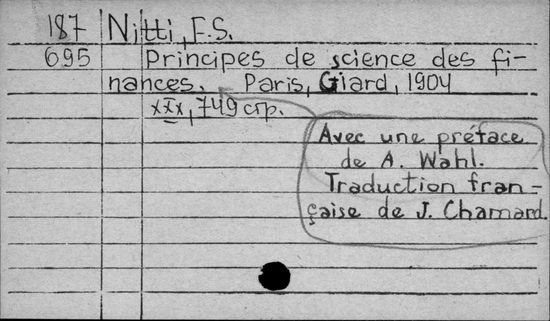 187 Nitti, F.S.
695 Principes de science des fi-
nances. Paris, Giard, 1904
XIX, 749 стр.
Avec une préface
de A. Wahl.
Traduction fran-
çaise de J. Chamard.